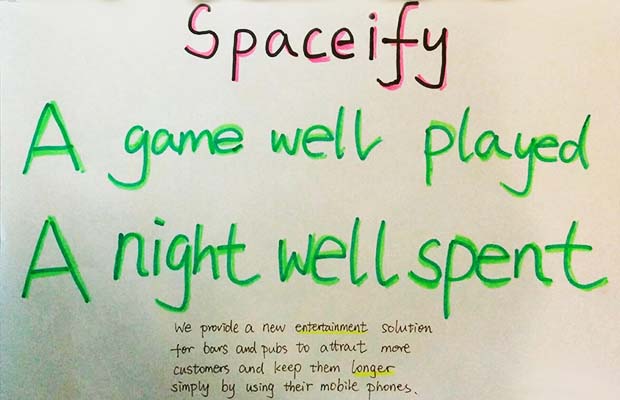 Spaceify
A game well played
A night well spent
We provide a new entertainment solution
for bars and pubs to attract more
customers and keep them longer
simply by using their mobile phones.